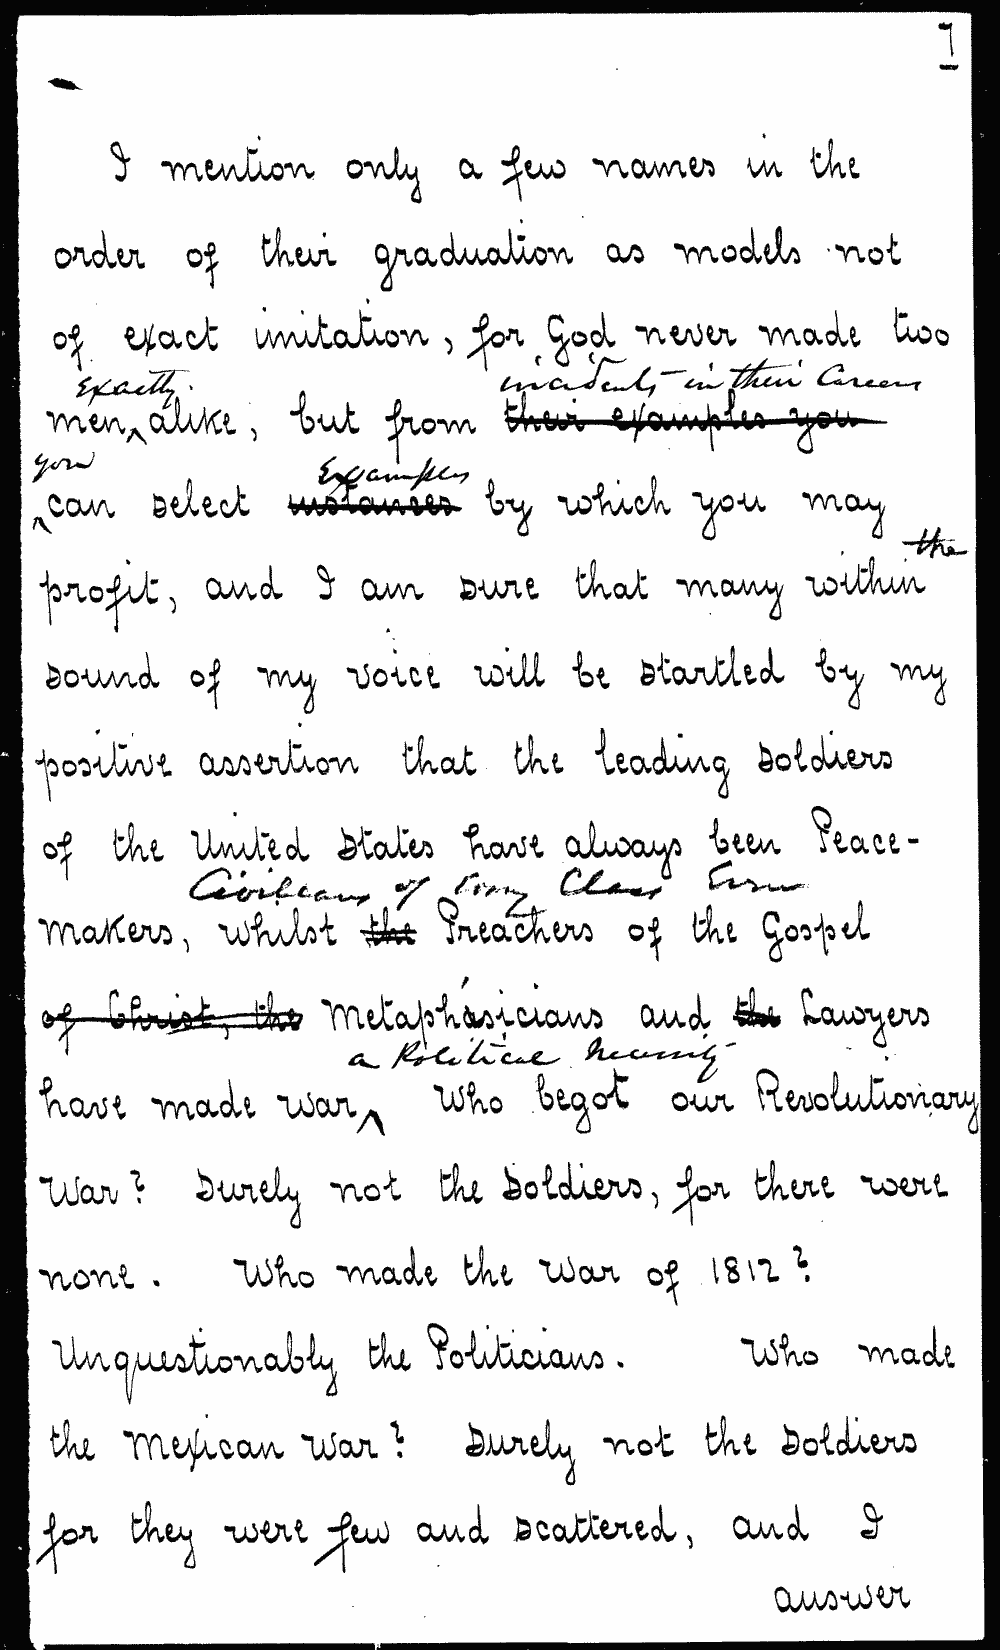 7
I mention only a few names in the
order of their graduation as models not
of exact imitation, for God never made two
exactly incidents in their Careers
men alike, but from their examples you
you Examples
can select instances by which you may
the
profit, and I am sure that many within
sound of my voice will be startled by my
positive assertion that the leading soldiers
of the United States have always been Peace-
Civilians of every Class Even
makers, whilst the Preachers of the Gospel
of Christ, the Metaphasicians and the Lawyers
a Political necessity
have made war Who begot our Revolutionary
War? Surely not the Soldiers, for there were
none. Who made the War of 1812?
Unquestionably the Politicians. Who made
the Mexican War? Surely not the Soldiers
for they were few and scattered, and I
answer